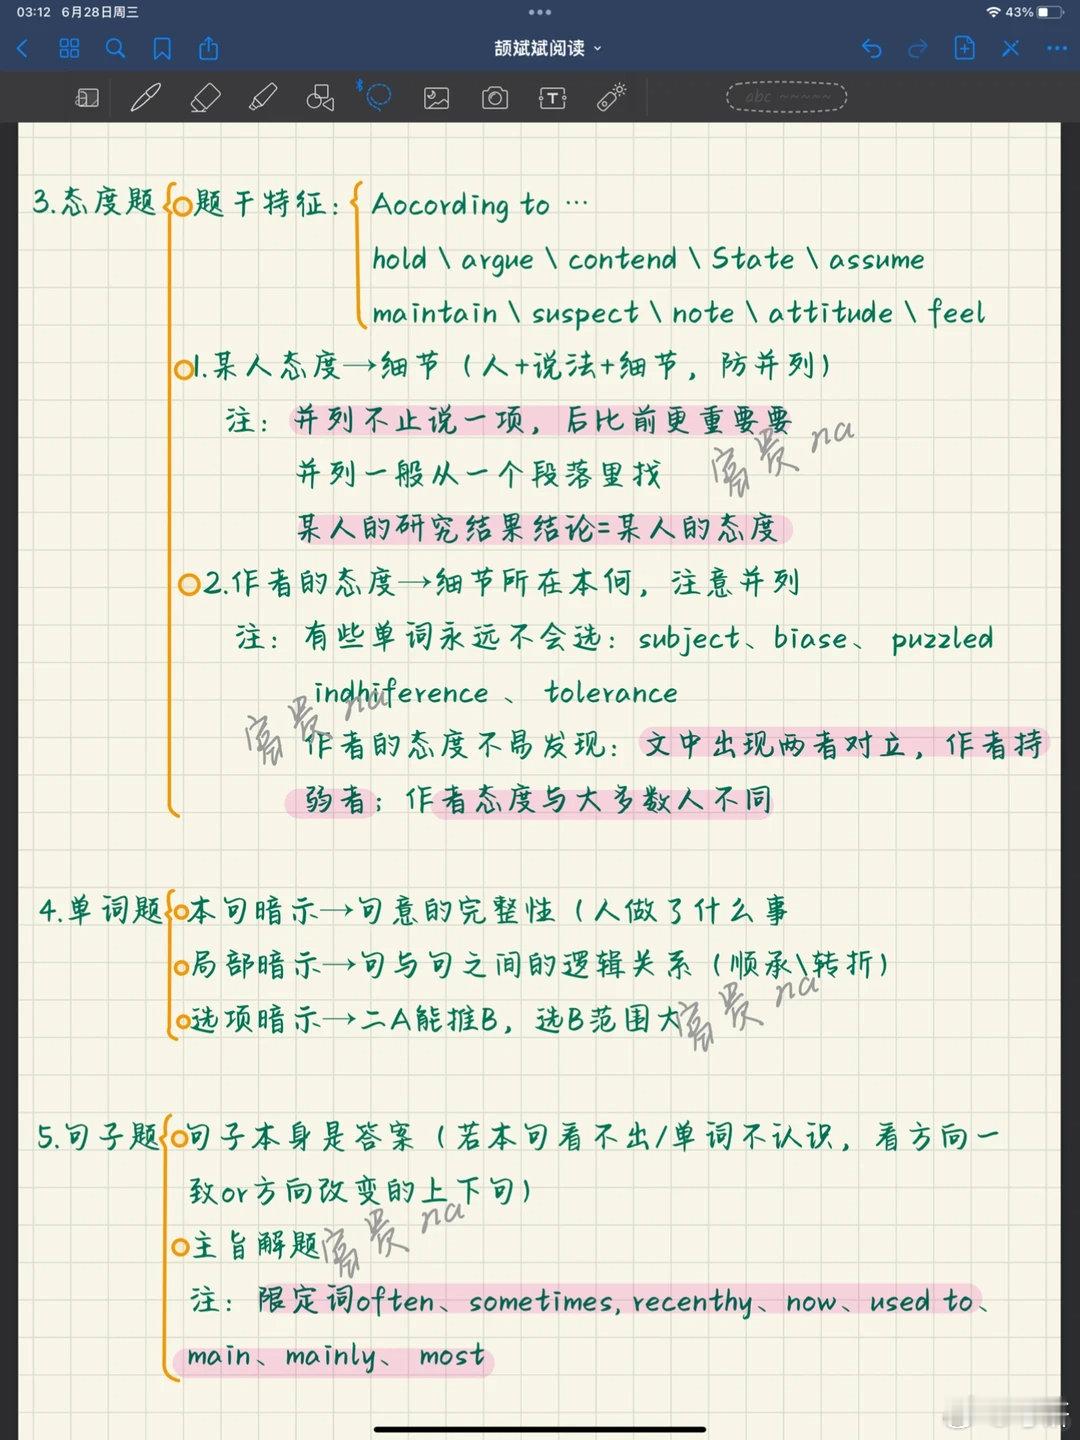 03:12 6月28日周三
43%
颉斌斌阅读
abc
3.态度题
题干特征:
Aocording to …
hold \ argue \ contend \ State \ assume
maintain \ suspect \ note \ attitude \ feel
1.某人态度→细节（人+说法+细节，防并列）
注：并列不止说一项，后比前更重要要
并列一般从一个段落里找
富贵 na
某人的研究结果结论=某人的态度
2.作者的态度→细节所在本何，注意并列
注：有些单词永远不会选：subject、biase、puzzled
indhiference、tolerance
富贵 na
作者的态度不易发现：文中出现两者对立，作者持
弱者；作者态度与大多数人不同
4.单词题
本句暗示→句意的完整性（人做了什么事
局部暗示→句与句之间的逻辑关系（顺承\转折）
选项暗示→二A能推B，选B范围大
富贵 na
5.句子题
句子本身是答案（若本句看不出/单词不认识，看方向一
致or方向改变的上下句）
主旨解题
富贵 na
注：限定词often、sometimes, recenthy、now、used to、
main、mainly、most